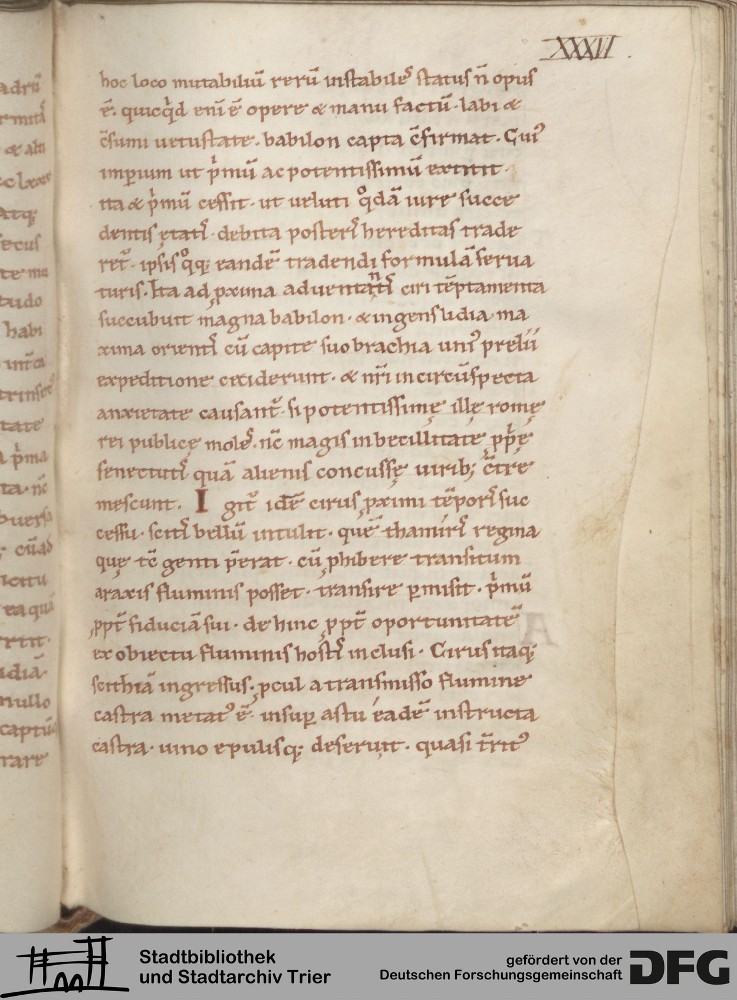 XXXVI .
hoc loco mutabiliū rerū instabiles status n̄ opus
ē. quicq̇d eni̅ ē opere & manu factū· labi &
c̄sumi uetustate· babilon capta c̄firmat. Cui᷒
imperium ut p̍mū ac potentissimū extitit·
ita & p̍mū cessit· ut ueluti q̊dā iure succe
dentis ętatis· debita posteris hereditas trade
ret᷒· ipsis q̊q; eandē tradendi formulā serua
turis. Ita ad ꝓxima aduentantis ciri tēptamenta
succubuit magna babilon· & ingens lidia· ma
xima orientis cū capite suo brachia uni᷒ prelii
expeditione ceciderunt· & nr̄i incircūspecta
anxietate causant᷒· si potentissimę illę romę
rei publicę moles· nc̄ magis inbecillitate ꝓp̍ę
senectutis quā alienis concussę uirib; c̄tre
mescunt. Igit᷒ idē cirus ꝓximi tēporis suc
cessu· scitis bellū intulit· quē thamiris regina
quę tc̄ genti p̄erat· cū ꝓhibere transitum
araxis fluminis posset· transire ꝑmisit· p̍mū
ꝓpt̄ fiduciā sui· dehinc ꝓpt̄ oportunitatē
ex obiectu fluminis hostis inclusi· Cirus itaq;
scithiā ingressus· ꝓcul a transmisso flumine
castra metat᷒ ē· insuꝑ astu eadē instructa
castra· uino epulisq; deseruit· quasi t̄rit᷒
adrū
rmitā
& ali
Atq;
secus
te mu
tudo
habi
trinsec᷒
tate
a p̍ma
ta· nc̄
icitu
ea quā
idia·
nullo
captū
rare
A
Stadtbibliothek
und Stadtarchiv Trier
gefördert von der
Deutschen Forschungsgemeinschaft
DFG